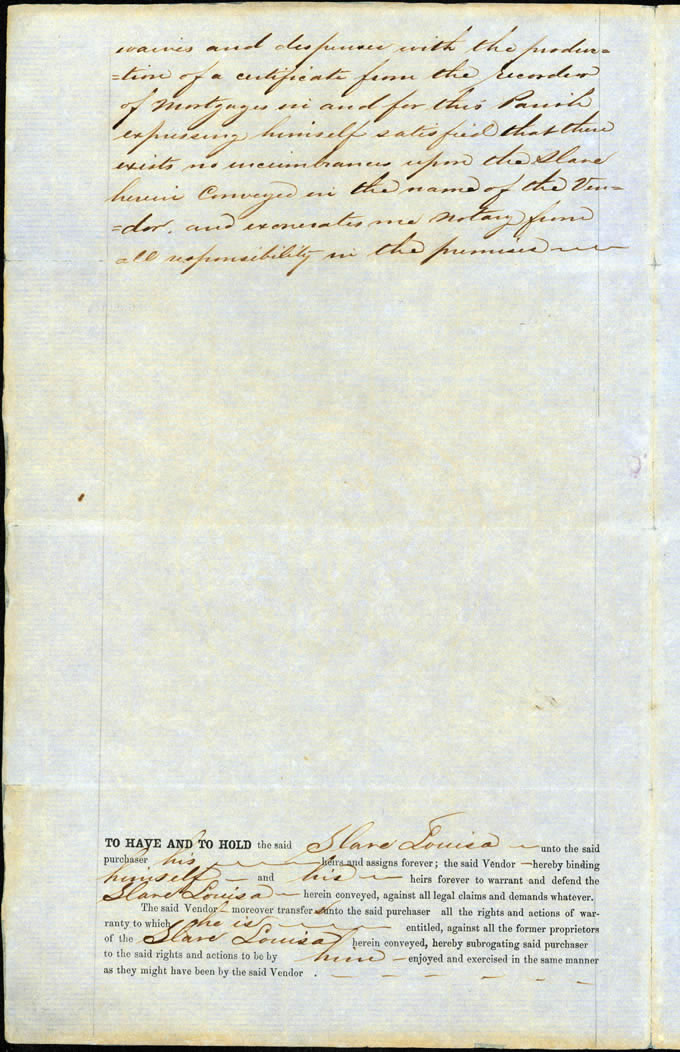 waives and dispenses with the produc=
=tion of a certificate from the recorder
of Mortgages in and for this Parish
expressing himself satisfied that there
exists no incumbrances upon the Slave
herein Conveyed in the name of the Ven=
=dor. and exonerates me Notary from
all responsibility in the premises
TO HAVE AND TO HOLD the said Slave Louisa unto the said
purchaser his heirs and assigns forever; the said Vendor hereby binding
himself and his heirs forever to warrant and defend the
Slave Louisa herein conveyed, against all legal claims and demands whatever.
The said Vendor moreover transfers unto the said purchaser all the rights and actions of war-
ranty to which he is entitled, against all the former proprietors
of the Slave Louisa herein conveyed, hereby subrogating said purchaser
to the said rights and actions to be by him enjoyed and exercised in the same manner
as they might have been by the said Vendor .